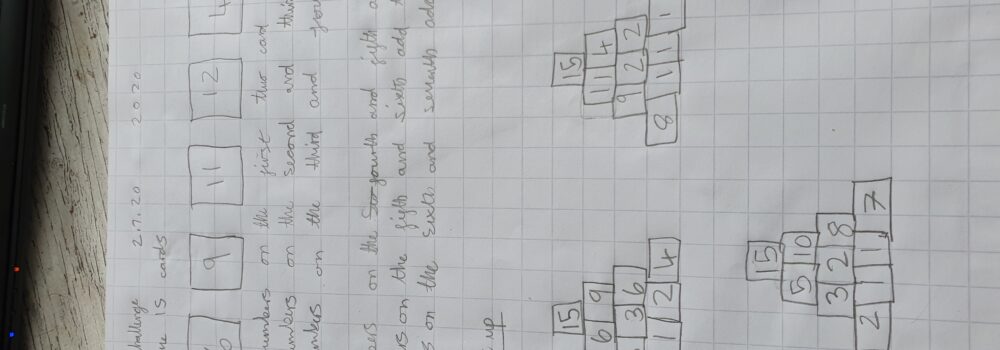 hallenge 2.7.20 2020
ne 15 cards
9 11 12 4
umbers on the first two card
umbers on the second and thi
mbers on the third and
bers on the fourth and fifth a
rs on the fifth and sixth add t
s on the sixth and seventh add
up
15
6 9
3 6
1 2 4
15
11 4
9 2 2
8 1 1 1
15
5 10
3 2 8
2 1 1 7